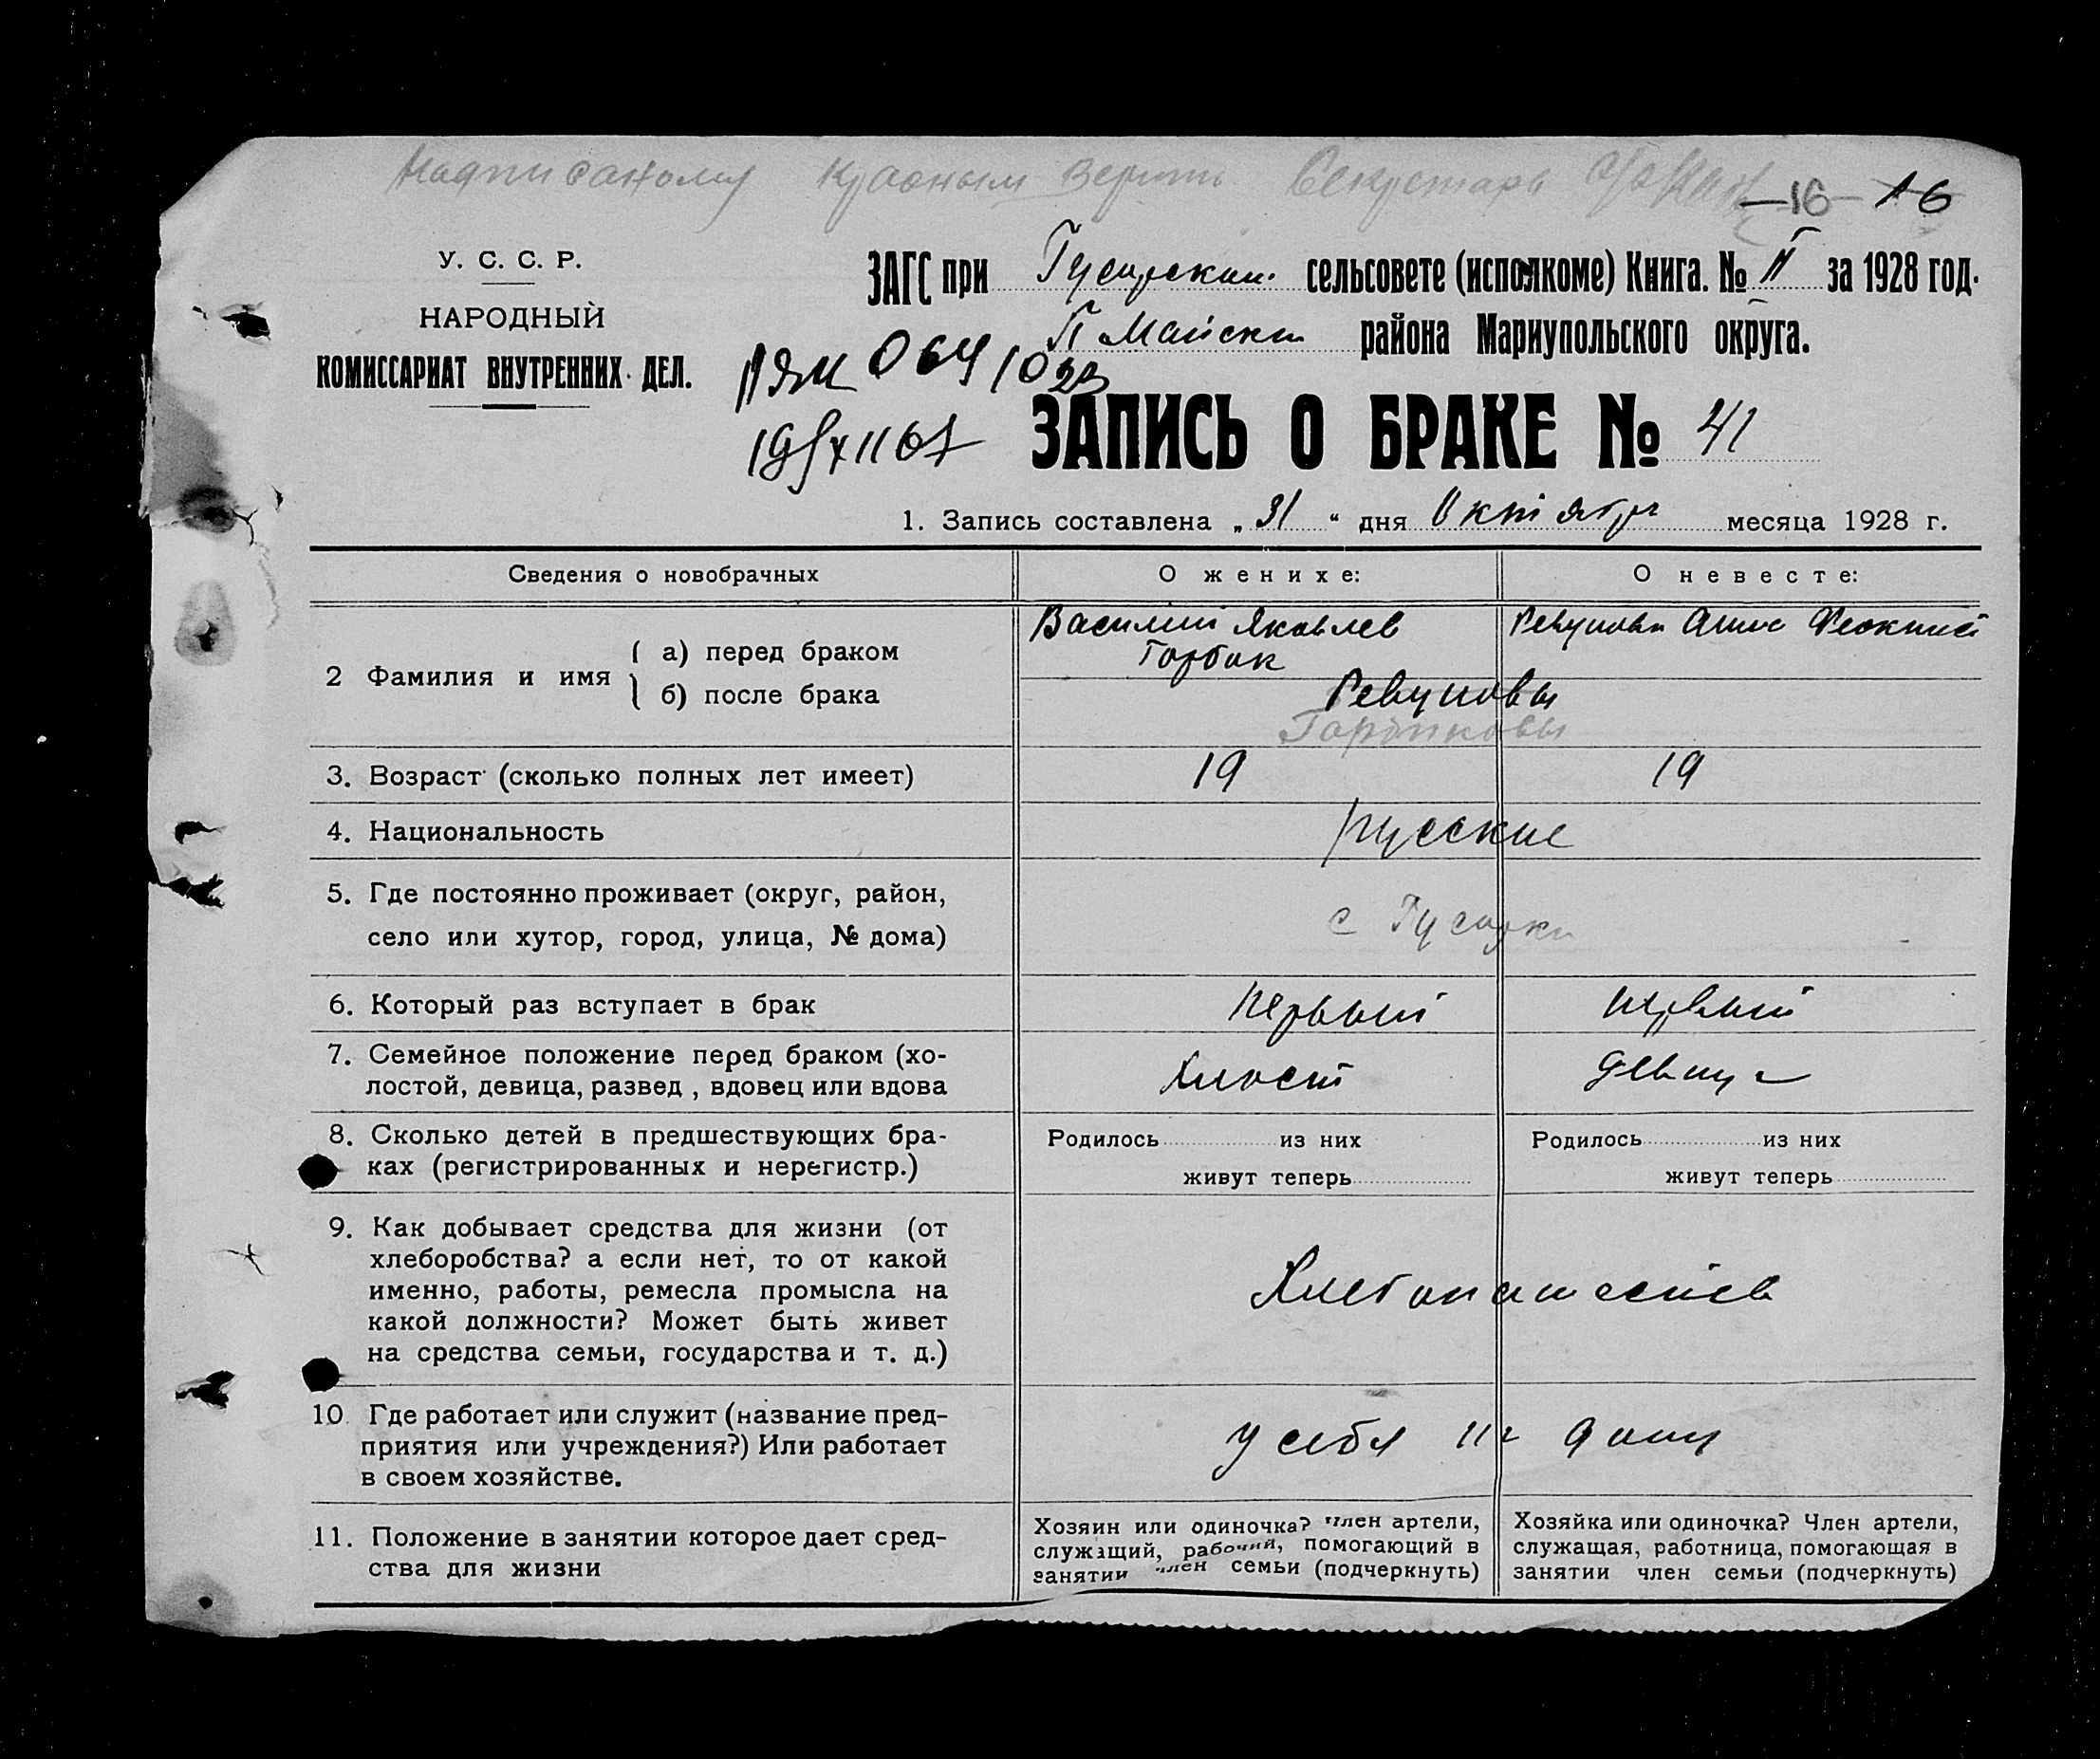 Надписаному красным верить Секретарь
—16— 16
У. С. С. Р.
НАРОДНЫЙ
КОМИССАРИАТ ВНУТРЕННИХ ДЕЛ.
ЗАГС при Гусарском сельсовете (исполкоме) Книга. № II за 1928 год.
П Майском района Мариупольского округа.
064 1023
ЗАПИСЬ О БРАКЕ № 41
1. Запись составлена „ 31 “ дня Октября месяца 1928 г.
Сведения о новобрачных О женихе: О невесте:
2 Фамилия и имя
а) перед браком Василий Яковлев Горбик Ревунова Анна
б) после брака Ревуновы
3. Возраст (сколько полных лет имеет) 19 19
4. Национальность русские
5. Где постоянно проживает (округ, район,
село или хутор, город, улица, № дома) с
6. Который раз вступает в брак первый первый
7. Семейное положение перед браком (хо-
лостой, девица, развед , вдовец или вдова Холост девица
8. Сколько детей в предшествующих бра-
ках (регистрированных и нерегистр.)
Родилось из них
живут теперь
Родилось из них
живут теперь
9. Как добывает средства для жизни (от
хлеборобства? а если нет, то от какой
именно, работы, ремесла промысла на
какой должности? Может быть живет
на средства семьи, государства и т. д.)
Хлебопашеств
10 Где работает или служит (название пред-
приятия или учреждения?) Или работает
в своем хозяйстве.
у себя на дому
11. Положение в занятии которое дает сред-
ства для жизни
Хозяин или одиночка? член артели,
служащий, рабочий, помогающий в
занятии член семьи (подчеркнуть)
Хозяйка или одиночка? Член артели,
служащая, работница, помогающая в
занятии член семьи (подчеркнуть)